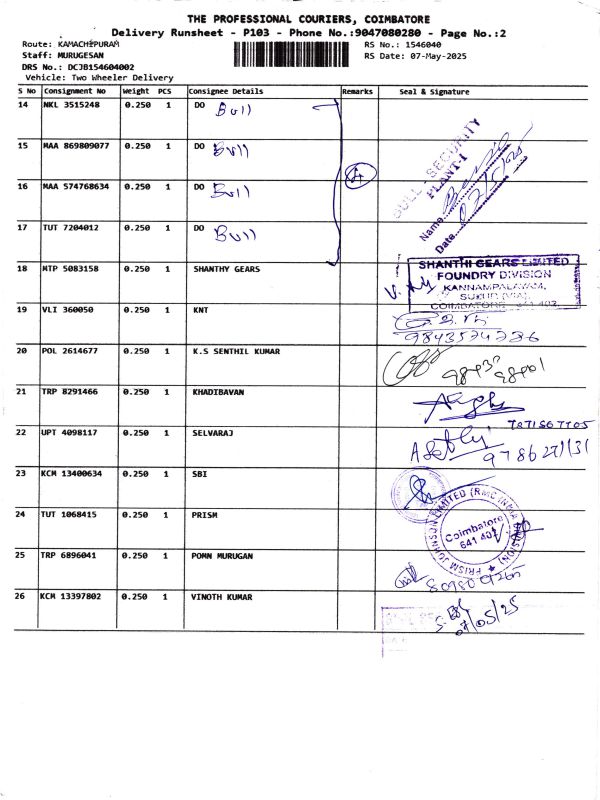 THE PROFESSIONAL COURIERS, COIMBATORE
Delivery Runsheet - P103 - Phone No.:9047080280 - Page No.:2
Route: KAMACHIPURAM RS No.: 1546040
Staff: MURUGESAN RS Date: 07-May-2025
DRS No.: DCJB154604002
Vehicle: Two Wheeler Delivery
S No Consignment No Weight PCS Consignee Details Remarks Seal & Signature
14 NKL 3515248 0.250 1 DO Bull
15 MAA 869809077 0.250 1 DO Bull
16 MAA 574768634 0.250 1 DO Bull 4
17 TUT 7204012 0.250 1 DO Bull
BULL SECURITY
PLANT-I
Name
Date
18 MTP 5083158 0.250 1 SHANTHY GEARS
SHANTHI GEARS LIMITED
FOUNDRY DIVISION
KANNAMPALAYAM,
SULUR (VIA),
COIMBATORE 641 402.
19 VLI 360050 0.250 1 KNT
9843574236
20 POL 2614677 0.250 1 K.S SENTHIL KUMAR
21 TRP 8291466 0.250 1 KHADIBAVAN
22 UPT 4098117 0.250 1 SELVARAJ
23 KCM 13400634 0.250 1 SBI
24 TUT 1068415 0.250 1 PRISM
PRISM JOHNSON LIMITED (RMC INDIA DIVISION)
Coimbatore
641 401
25 TRP 6896041 0.250 1 PONN MURUGAN
26 KCM 13397802 0.250 1 VINOTH KUMAR
07/05/25